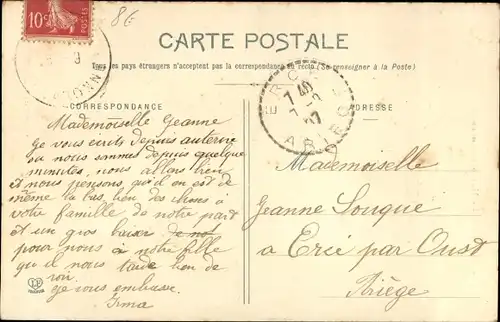 8€
10c
CARTE POSTALE
Tous les pays étrangers n'acceptent pas la correspondance au recto (Se renseigner à la Poste)
CORRESPONDANCE
ADRESSE
ERCÉ
7 40
7 - 2
07
ARIEGE
Mademoiselle Jeanne
Je vous ecrits depuis auterive
ou nous sommes depuis quelque
minutes, nous allons bien
et nous pensons qu'il en est de
même la bas bien des choses a
votre famille de notre part
et un gros baiser de not
pour nous à notre fille
qu'il nous tarde bien de
voir
Je vous embrasse
Irma
Mademoiselle
Jeanne Souque
a Ercé par Oust
Ariège